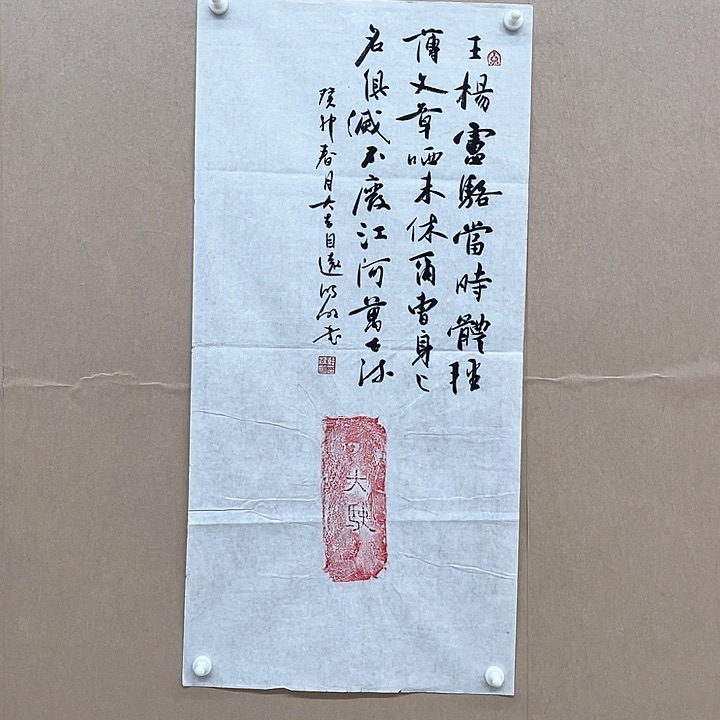 王楊盧駱當時體輕
薄文章哂未休爾曹身
名俱滅不廢江河萬古流
癸卯春月大
大